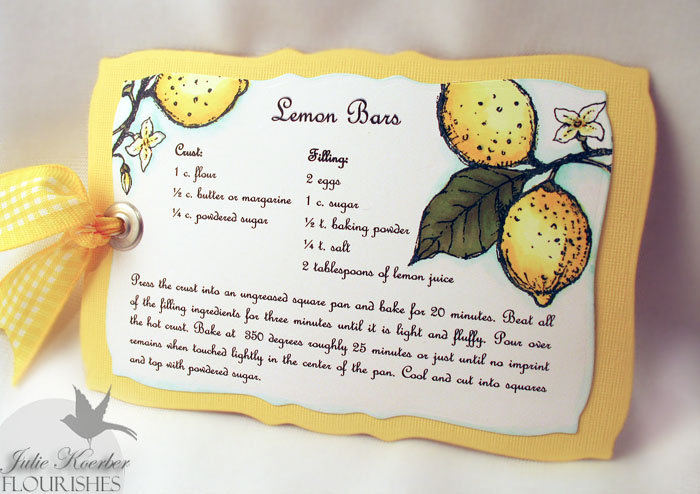 Lemon Bars
Crust:
1 c. flour
½ c. butter or margarine
¼ c. powdered sugar
Filling:
2 eggs
1 c. sugar
½ t. baking powder
¼ t. salt
2 tablespoons of lemon juice
Press the crust into an ungreased square pan and bake for 20 minutes. Beat all
of the filling ingredients for three minutes until it is light and fluffy. Pour over
the hot crust. Bake at 350 degrees roughly 25 minutes or just until no imprint
remains when touched lightly in the center of the pan. Cool and cut into squares
and top with powdered sugar.
Julie Koerber
FLOURISHES